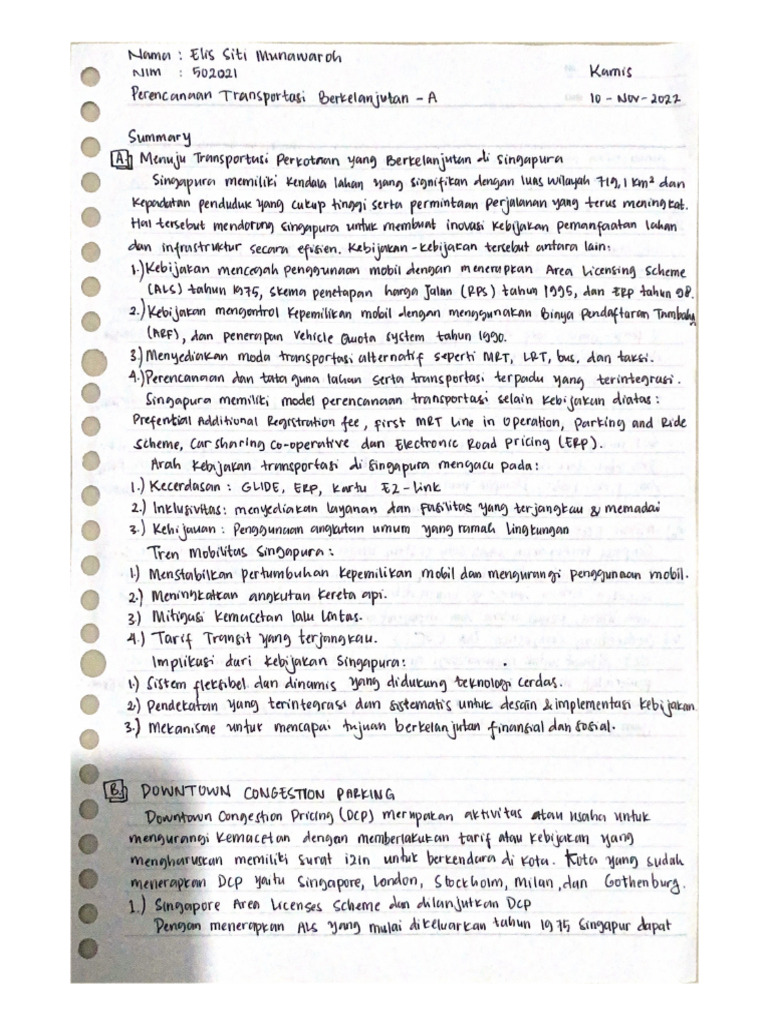 Nama : Elis Siti Munawaroh
NIM : 502021
Kamis
Perencanaan Transportasi Berkelanjutan - A
10 - Nov - 2022
Summary
A. Menuju Transportasi Perkotaan yang Berkelanjutan di Singapura
Singapura memiliki kendala lahan yang signifikan dengan luas wilayah 719,1 km² dan
kepadatan penduduk yang cukup tinggi serta permintaan perjalanan yang terus meningkat.
Hal tersebut mendorong singapura untuk membuat inovasi kebijakan pemanfaatan lahan
dan infrastruktur secara efisien. Kebijakan-kebijakan tersebut antara lain:
1.) Kebijakan mencegah penggunaan mobil dengan menerapkan Area Licensing Scheme
(ALS) tahun 1975, skema penetapan harga Jalan (RPS) tahun 1995, dan ERP tahun 98.
2.) Kebijakan mengontrol kepemilikan mobil dengan menggunakan Biaya Pendaftaran Tambahan
(ARF), dan penerapan Vehicle Quota System tahun 1990.
3.) Menyediakan moda transportasi alternatif seperti MRT, LRT, bus, dan taksi.
4.) Perencanaan dan tata guna lahan serta transportasi terpadu yang terintegrasi.
Singapura memiliki model perencanaan transportasi selain kebijakan diatas:
Prefential Additional Registration fee, first MRT Line in Operation, Parking and Ride
Scheme, Car sharing Co-operative dan Electronic Road Pricing (ERP).
Arah kebijakan transportasi di Singapura mengacu pada:
1.) Kecerdasan : GLIDE, ERP, Kartu EZ-Link
2.) Inklusivitas: menyediakan layanan dan fasilitas yang terjangkau & memadai
3.) Kehijauan : Penggunaan angkutan umum yang ramah lingkungan
Tren Mobilitas Singapura :
1.) Menstabilkan pertumbuhan kepemilikan mobil dan mengurangi penggunaan mobil.
2.) Meningkatkan angkutan kereta api.
3.) Mitigasi kemacetan lalu lintas.
4.) Tarif Transit yang terjangkau.
Implikasi dari kebijakan Singapura:
1.) Sistem fleksibel dan dinamis yang didukung teknologi cerdas.
2.) Pendekatan yang terintegrasi dan sistematis untuk desain & implementasi kebijakan
3.) Mekanisme untuk mencapai tujuan berkelanjutan finansial dan sosial.
B. DOWNTOWN CONGESTION PARKING
Downtown Congestion Pricing (DCP) merupakan aktivitas atau usaha untuk
mengurangi kemacetan dengan memberlakukan tarif atau kebijakan yang
mengharuskan memiliki surat izin untuk berkendara di kota. Kota yang sudah
menerapkan DCP yaitu Singapore, London, Stockholm, Milan, dan Gothenburg.
1.) Singapore Area Licenses Scheme dan dilanjutkan DCP
Dengan menerapkan ALS yang mulai dikeluarkan tahun 1975 Singapur dapat